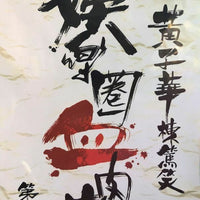 黃子華棟篤笑
娛樂圈血肉
第